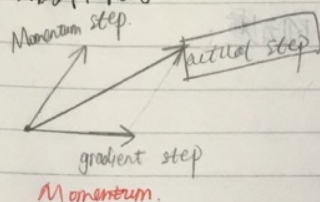 Momentum step.
actual step
gradient step
Momentum.